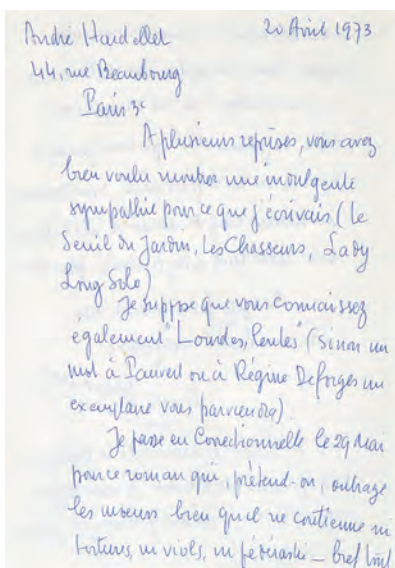 André Hardellet 20 Avril 1973
44, rue Beaubourg
Paris 3e
A plusieurs reprises, vous avez
bien voulu montrer une indulgente
sympathie pour ce que j'écrivais (Le
Seuil du Jardin, Les Chasseurs, Lady
Long Solo)
Je suppose que vous connaissez
également "Lourdes, lentes" (sinon un
mot à Pauvert ou à Régine Deforges un
exemplaire vous parviendra).
Je passe en Correctionnelle le 29 Mai
pour ce roman qui, prétend-on, outrage
les moeurs bien qu'il ne contienne ni
tortures, ni viols, ni pédérastie — bref tout